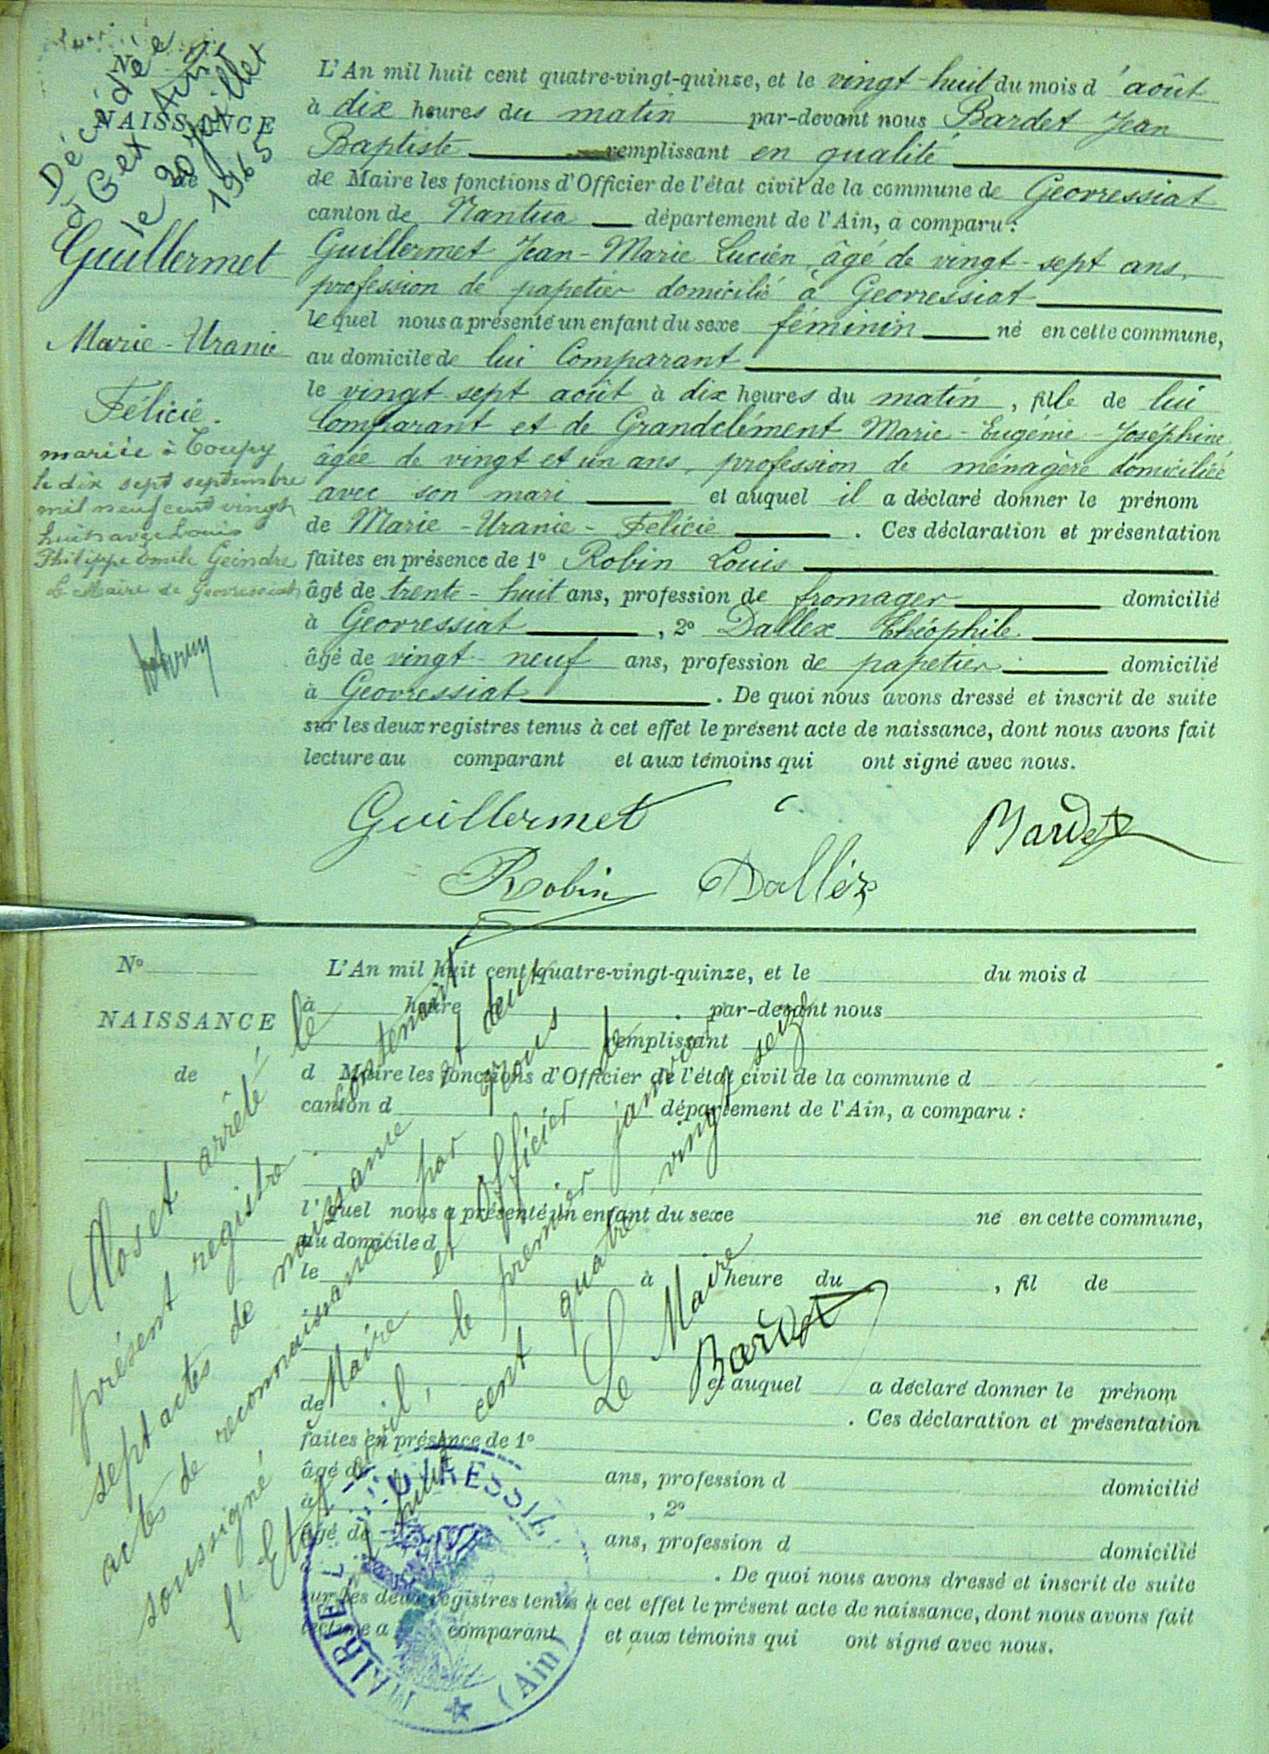 Décédée
à Gex Ain
le 20 juillet
1965
N°
NAISSANCE
de
Guillermet
Marie-Uranie
Félicie.
mariée à Coupy
le dix sept septembre
mil neuf cent vingt
huit avec Louis
Philippe Emile Geindre
Le Maire de Géovressiat
L'An mil huit cent quatre-vingt-quinze, et le vingt-huit du mois d'août
à dix heures du matin par-devant nous Bardet Jean
Baptiste remplissant en qualité
de Maire les fonctions d'Officier de l'état civil de la commune de Géovressiat
canton de Nantua département de l'Ain, a comparu :
Guillermet Jean-Marie Lucien, âgé de vingt-sept ans,
profession de papetier domicilié à Géovressiat
lequel nous a présenté un enfant du sexe féminin né en cette commune,
au domicile de lui Comparant
le vingt sept août à dix heures du matin, fille de lui
Comparant et de Grandclément Marie-Eugénie-Joséphine
âgée de vingt et un ans, profession de ménagère domiciliée
avec son mari et auquel il a déclaré donner le prénom
de Marie-Uranie-Félicie. Ces déclaration et présentation
faites en présence de 1° Robin Louis
âgé de trente-huit ans, profession de fromager domicilié
à Géovressiat, 2° Dallex Théophile.
âgé de vingt-neuf ans, profession de papetier domicilié
à Géovressiat. De quoi nous avons dressé et inscrit de suite
sur les deux registres tenus à cet effet le présent acte de naissance, dont nous avons fait
lecture au comparant et aux témoins qui ont signé avec nous.
Guillermet
Bardet
Robin Dallex
N°
NAISSANCE
de
L'An mil huit cent quatre-vingt-quinze, et le du mois d
à heure par-devant nous
remplissant
d Maire les fonctions d'Officier de l'état civil de la commune d
canton d département de l'Ain, a comparu :
l quel nous a présenté un enfant du sexe né en cette commune,
au domicile d
le à heure du , fil de
et auquel a déclaré donner le prénom
de . Ces déclaration et présentation
faites en présence de 1°
âgé de ans, profession d domicilié
à , 2°
âgé de ans, profession d domicilié
à . De quoi nous avons dressé et inscrit de suite
sur les deux registres tenus à cet effet le présent acte de naissance, dont nous avons fait
lecture a comparant et aux témoins qui ont signé avec nous.
Clos et arrêté le
présent registre contenant
sept actes de naissance et deux
actes de reconnaissance par nous
soussigné Maire et Officier de
l'Etat civil, le premier janvier
mil huit cent quatre vingt seize
Le Maire
Bardet
MAIRIE (Ain)